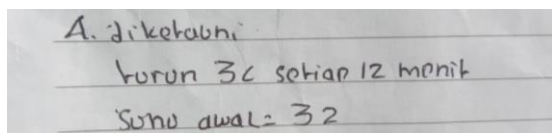 A. diketauni
turun 3c setiap 12 menit
Suhu awal = 32